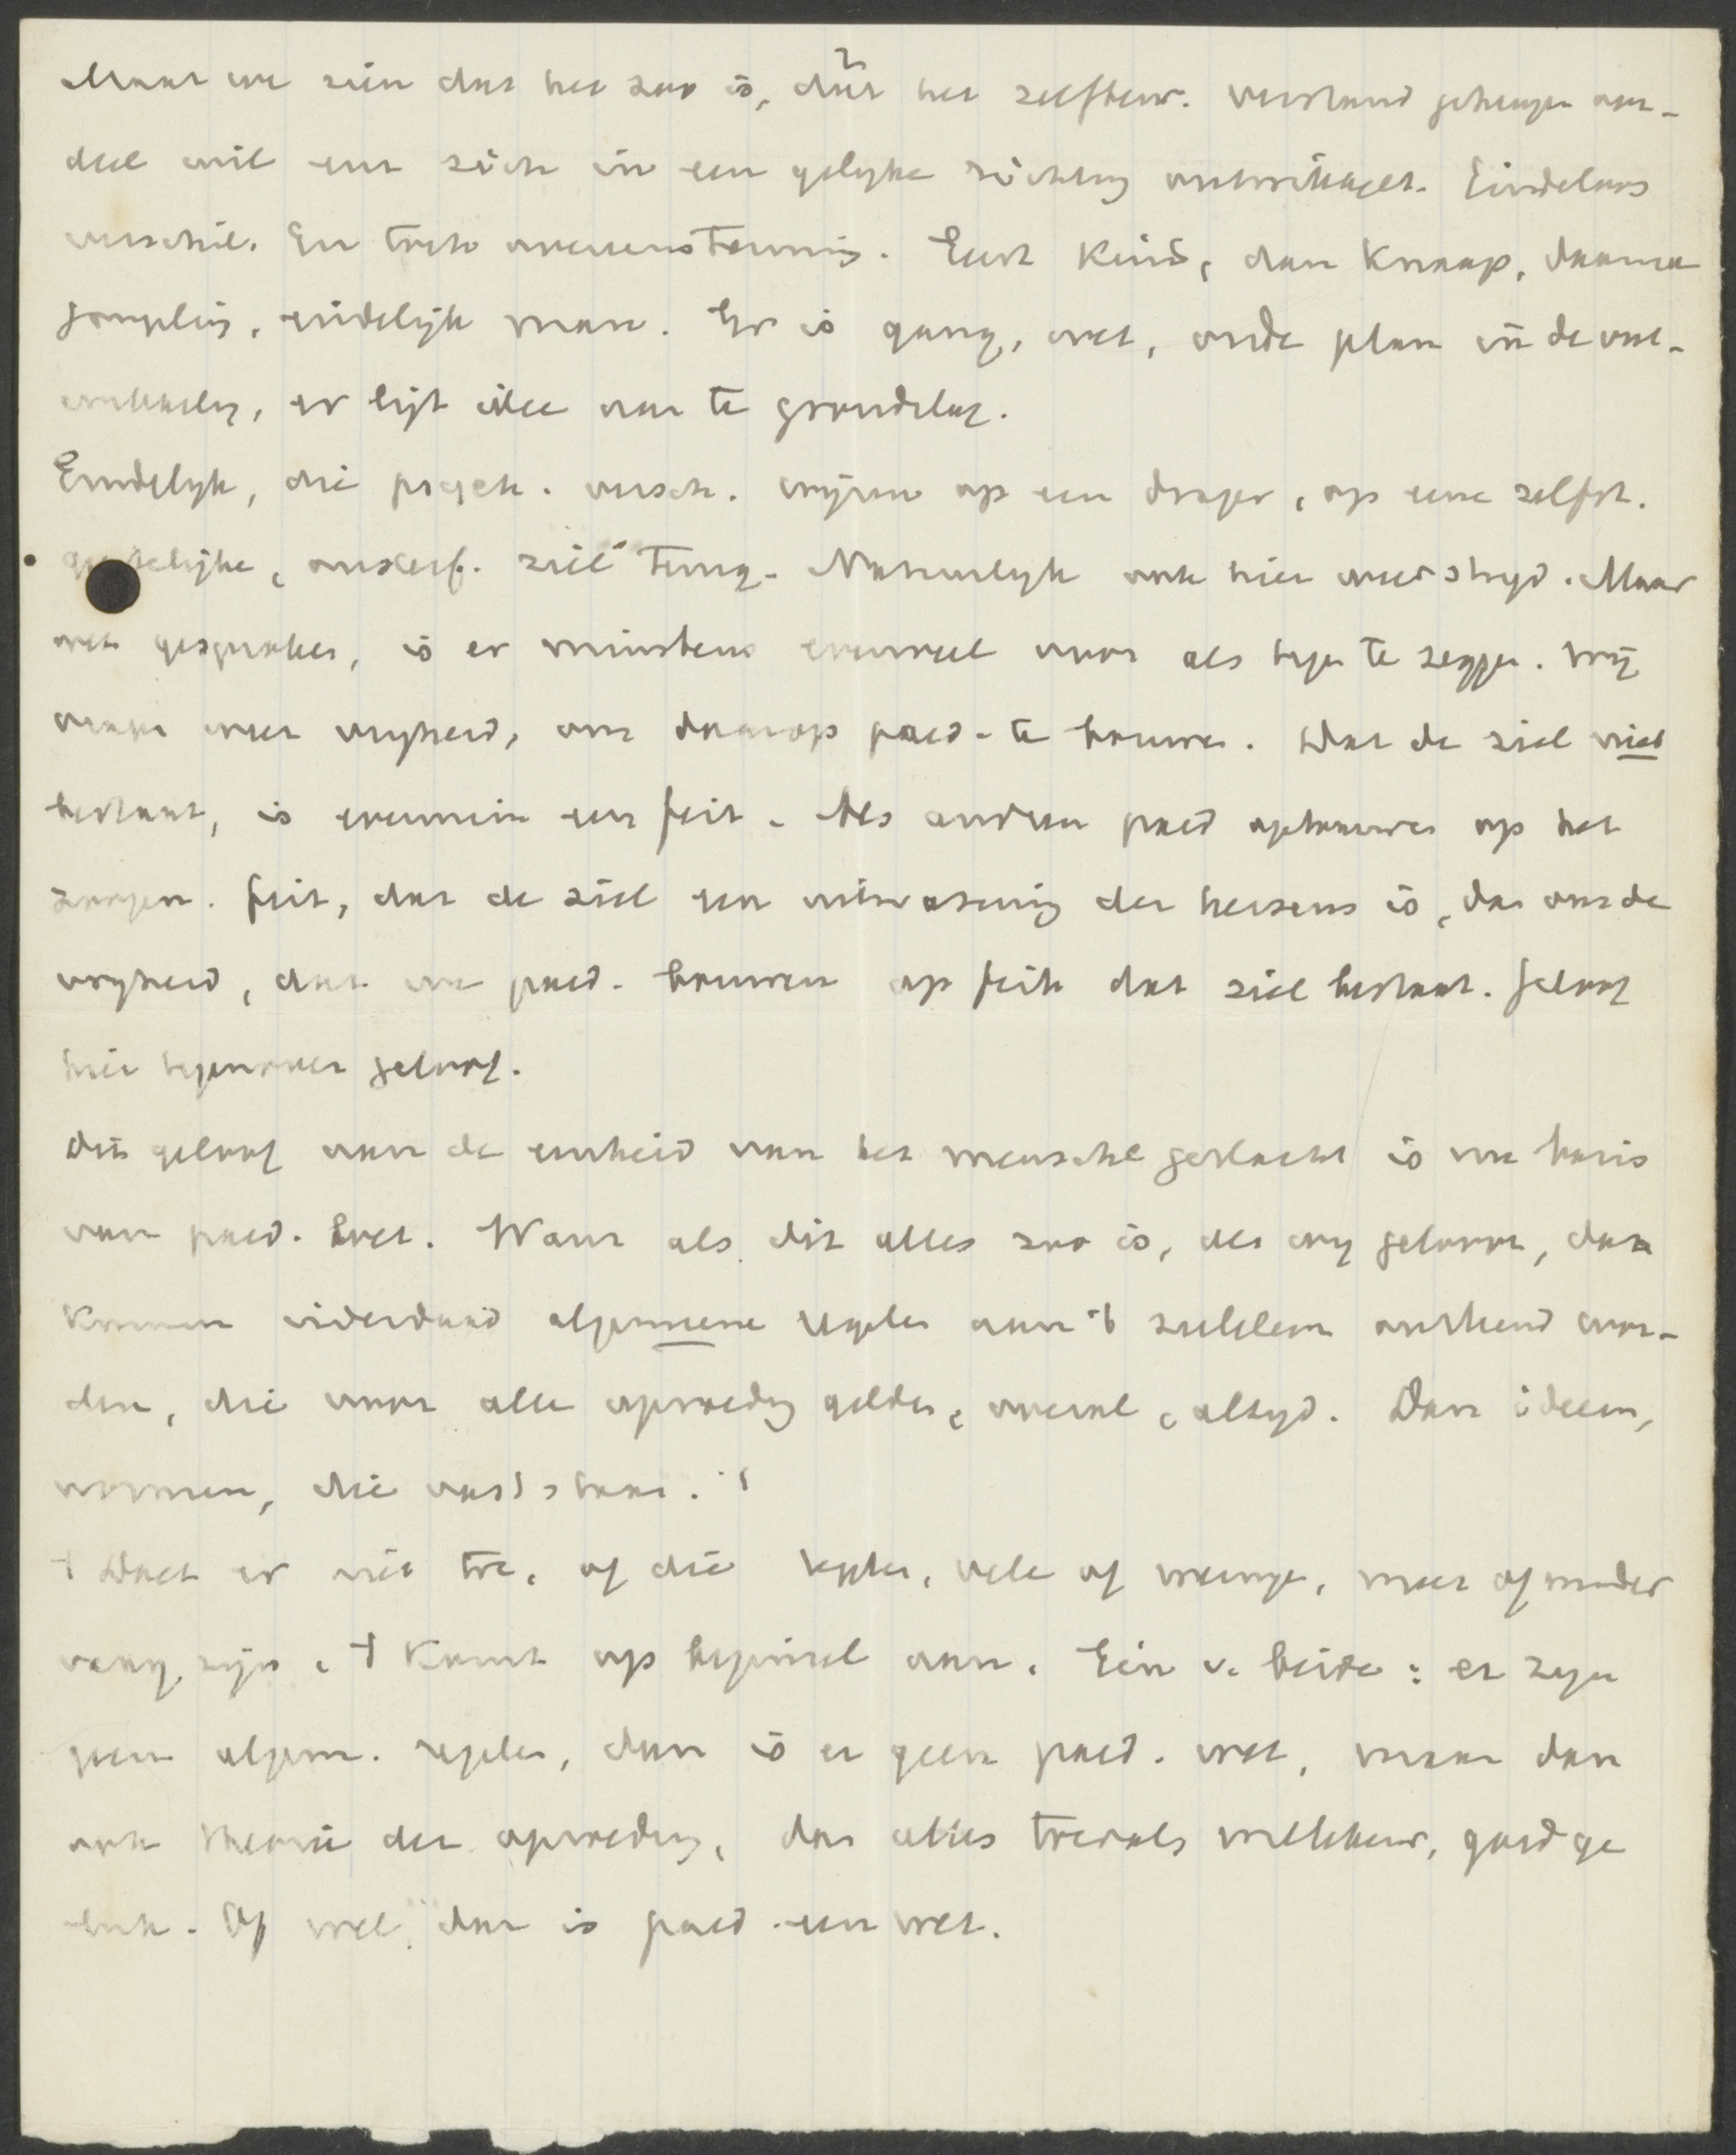 Maar we zien dat het zoo is, dat het zelfbew. verstand geheugen oor-
deel wil enz zich in een gelijke richting ontwikkelt. Eindeloos
verschil. En toch overeenstemming. Eerst kind, dan knaap, daarna
jongeling, eindelijk man. Er is gang, wet, orde plan in de ont-
wikkeling, er ligt idee aan te grondslag.
Eindelijk, die psych. versch. wijzen op een drager, op eene zelfst.
geestelijke, onsterf. ziel terug. Natuurlijk ook hier weer strijd. Maar
wet gesproken, is er minstens evenveel voor als tegen te zeggen. Wij
weer vrijheid, om daarop paed. te bouwen. Dat de ziel niet
bestaat, is evenmin een feit. Als anderen paed opbouwen op het
zoogen. feit, dat de ziel een uitwaseming der hersens is, dan ons de
vrijheid, dat we paed. bouwen op feit dat ziel bestaat. Geloof
hier tegenover geloof.
Dit geloof aan de eenheid van het menschel geslacht is nu basis
van paed. wet. Want als dit alles zoo is, als wij gelooven, dan
kunnen inderdaad algemeene regelen aan 't zieleleven ontleend wor-
den, die voor alle opvoeding gelden, overal, altijd. Dan ideeen,
normen, die vast staan.
't Doet er niet toe, of die regelen, vele of weinige, meer of minder
vaag zijn, 't komt op beginsel aan. Een v. beide: er zijn
geen algem. regelen, dan is er geen paed. wet, maar dan
ook theorie der opvoeding, dan alles toevals willekeur, goed ge
luk. Of wel, dan is paed. een wet.